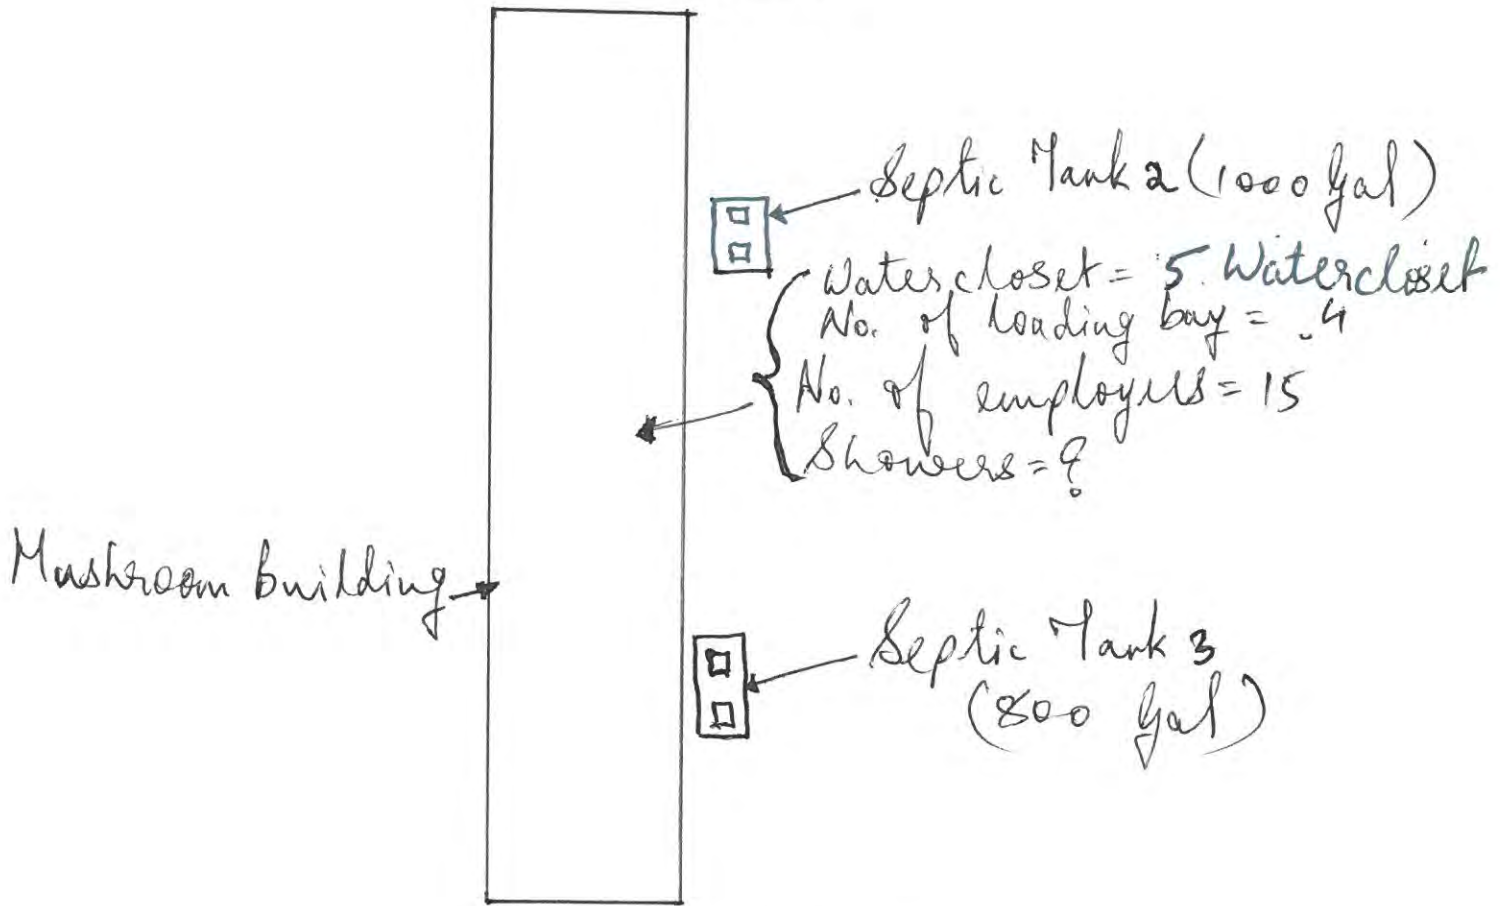 Septic Tank 2 (1000 Gal)
Watercloset = 5. Watercloset
No. of loading bay = .4
No. of employees = 15
Showers = ?
Mushroom building
Septic Tank 3
(800 Gal)